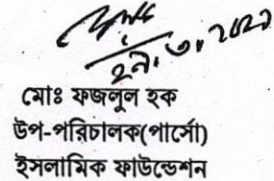 মোঃ ফজলুল হক
উপ-পরিচালক(পার্সো)
ইসলামিক ফাউন্ডেশন